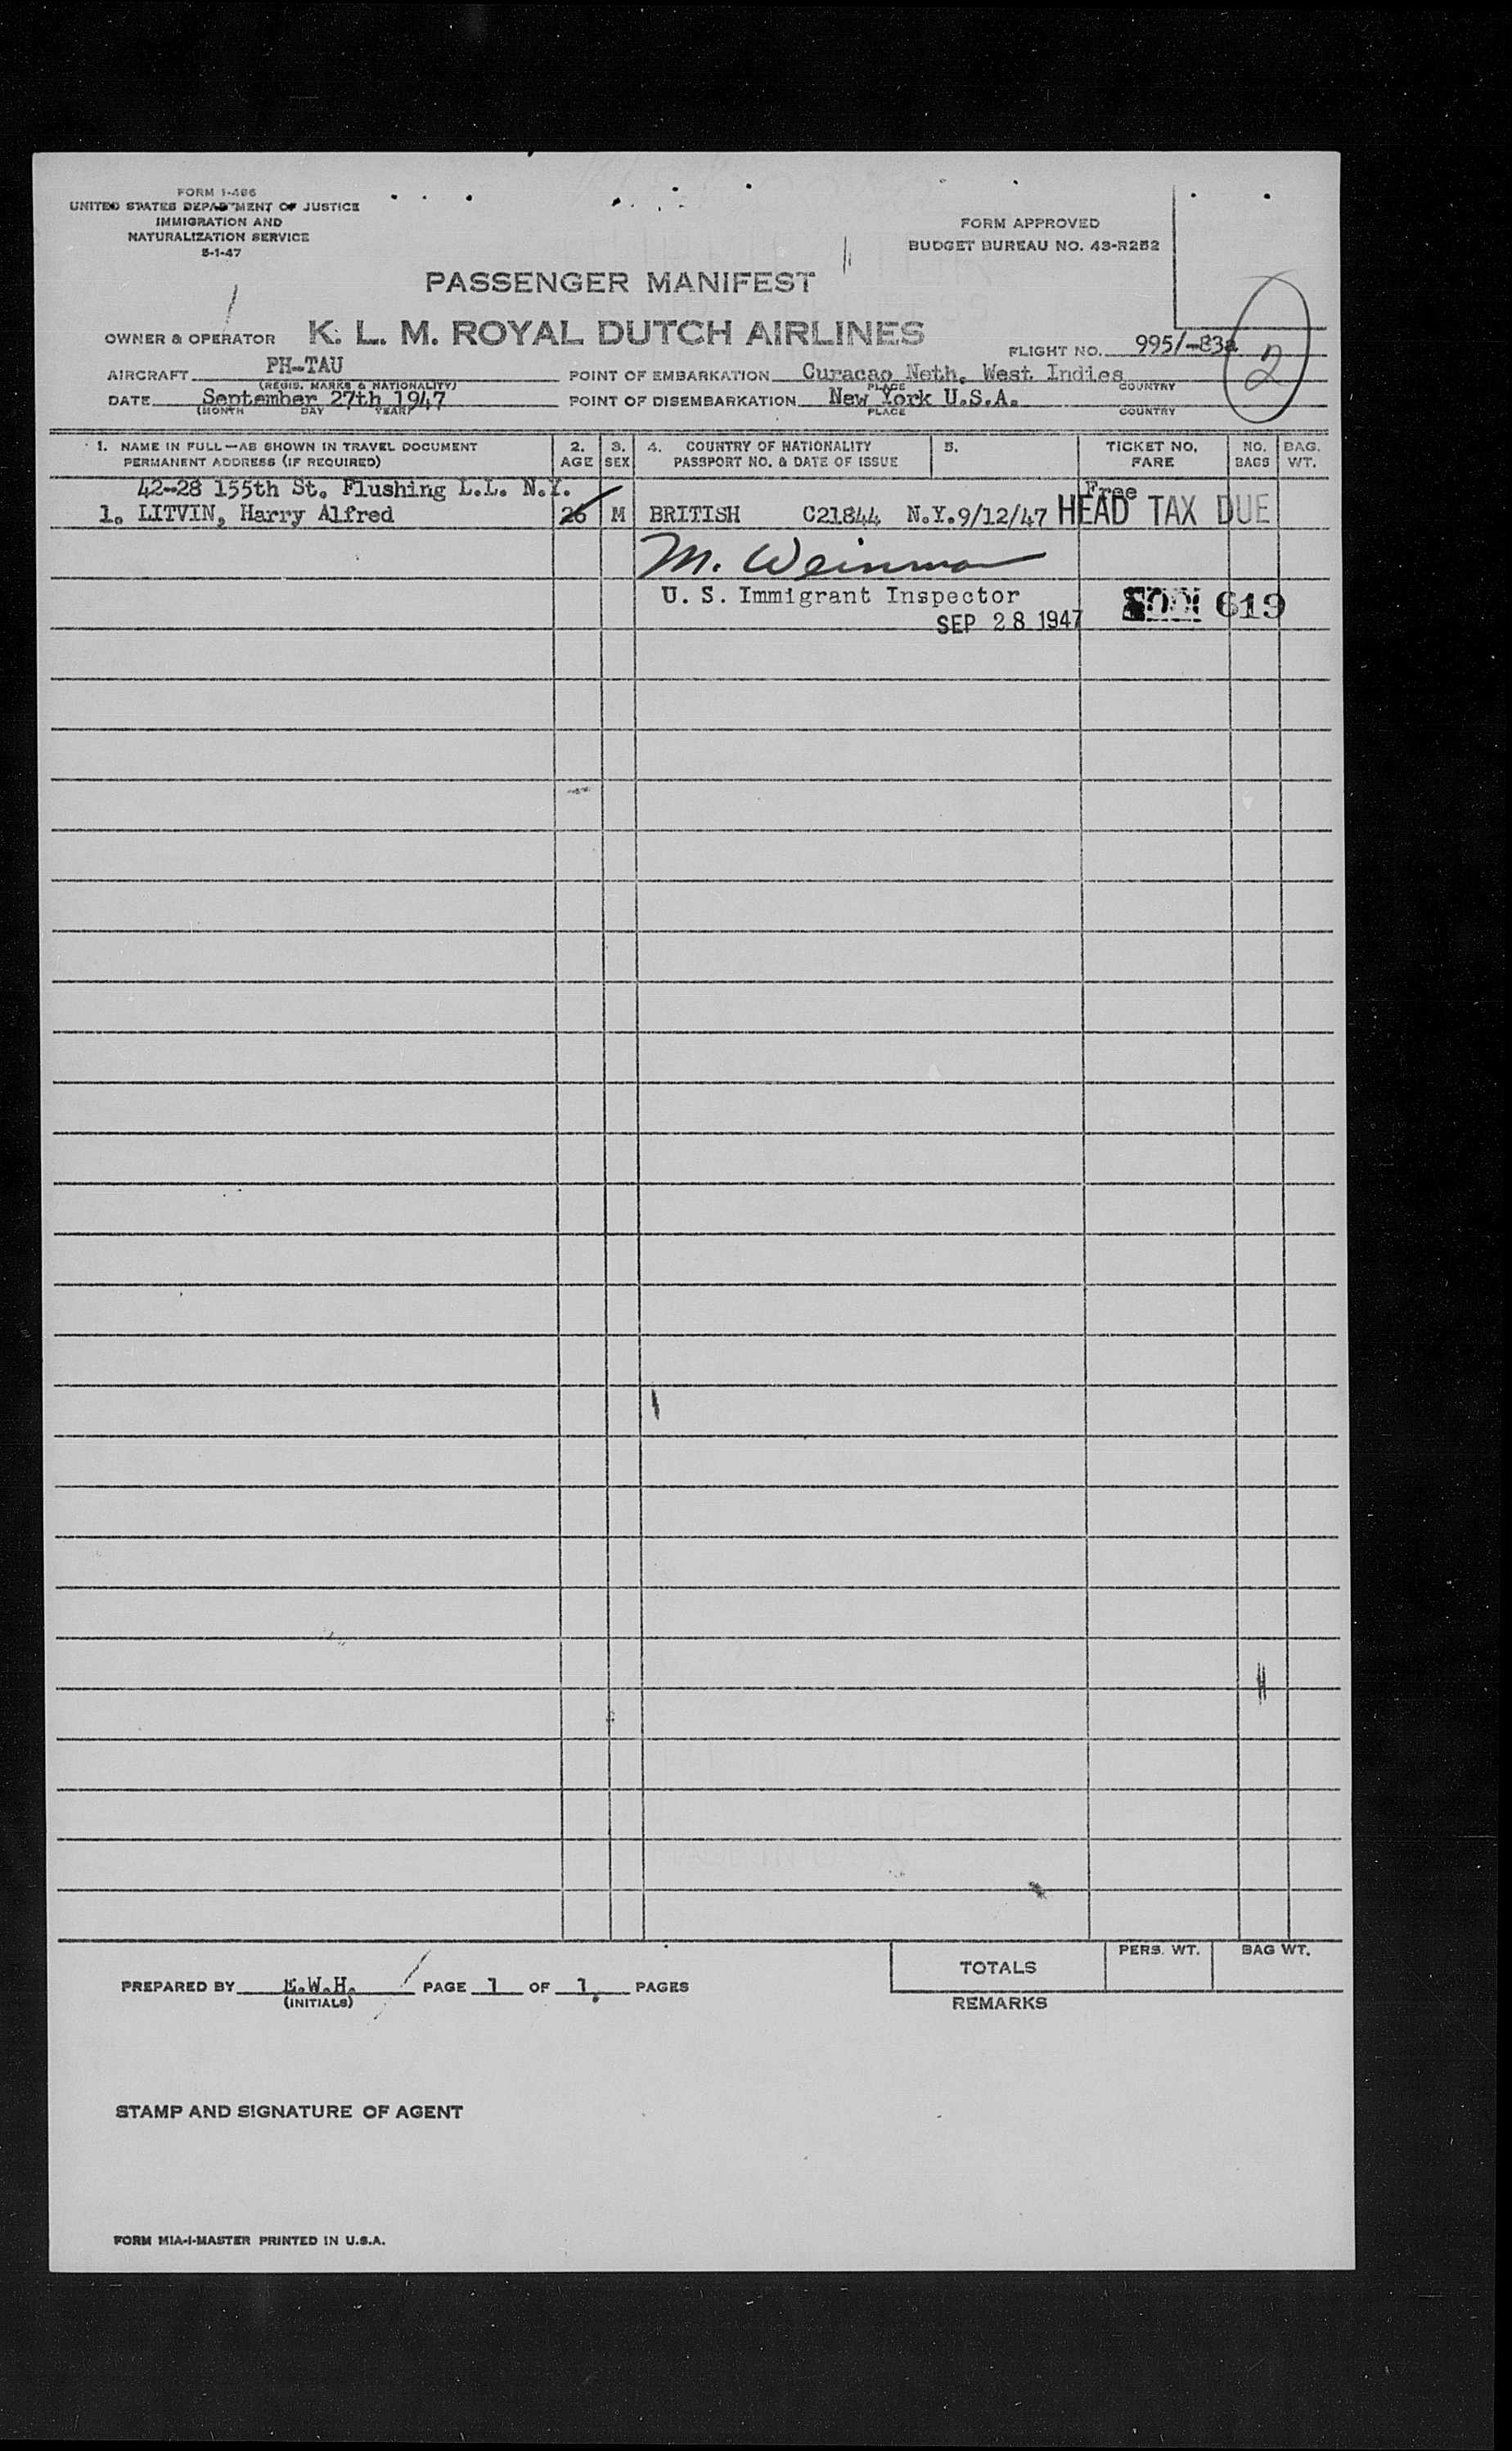 FORM I-466
UNITED STATES DEPARTMENT OF JUSTICE
IMMIGRATION AND
NATURALIZATION SERVICE
5-1-47
FORM APPROVED
BUDGET BUREAU NO. 43-R252
PASSENGER MANIFEST
OWNER & OPERATOR K. L. M. ROYAL DUTCH AIRLINES
FLIGHT NO. 995/-83a
2
AIRCRAFT PH-TAU POINT OF EMBARKATION Curacao Neth. West Indies
(REGIS. MARKS & NATIONALITY) PLACE COUNTRY
DATE September 27th 1947 POINT OF DISEMBARKATION New York U.S.A.
(MONTH DAY YEAR) PLACE COUNTRY
1. NAME IN FULL—AS SHOWN IN TRAVEL DOCUMENT 2. 3. 4. COUNTRY OF NATIONALITY 5. TICKET NO. NO. BAG.
PERMANENT ADDRESS (IF REQUIRED) AGE SEX PASSPORT NO. & DATE OF ISSUE FARE BAGS WT.
42-28 155th St. Flushing L.I. N.Y. Free
1. LITVIN, Harry Alfred 26 M BRITISH C21844 N.Y.9/12/47 HEAD TAX DUE
M. Weinman
U. S. Immigrant Inspector
619
SEP 28 1947
TOTALS PERS. WT. BAG WT.
PREPARED BY E.W.H. PAGE 1 OF 1. PAGES
(INITIALS) REMARKS
STAMP AND SIGNATURE OF AGENT
FORM MIA-I-MASTER PRINTED IN U.S.A.